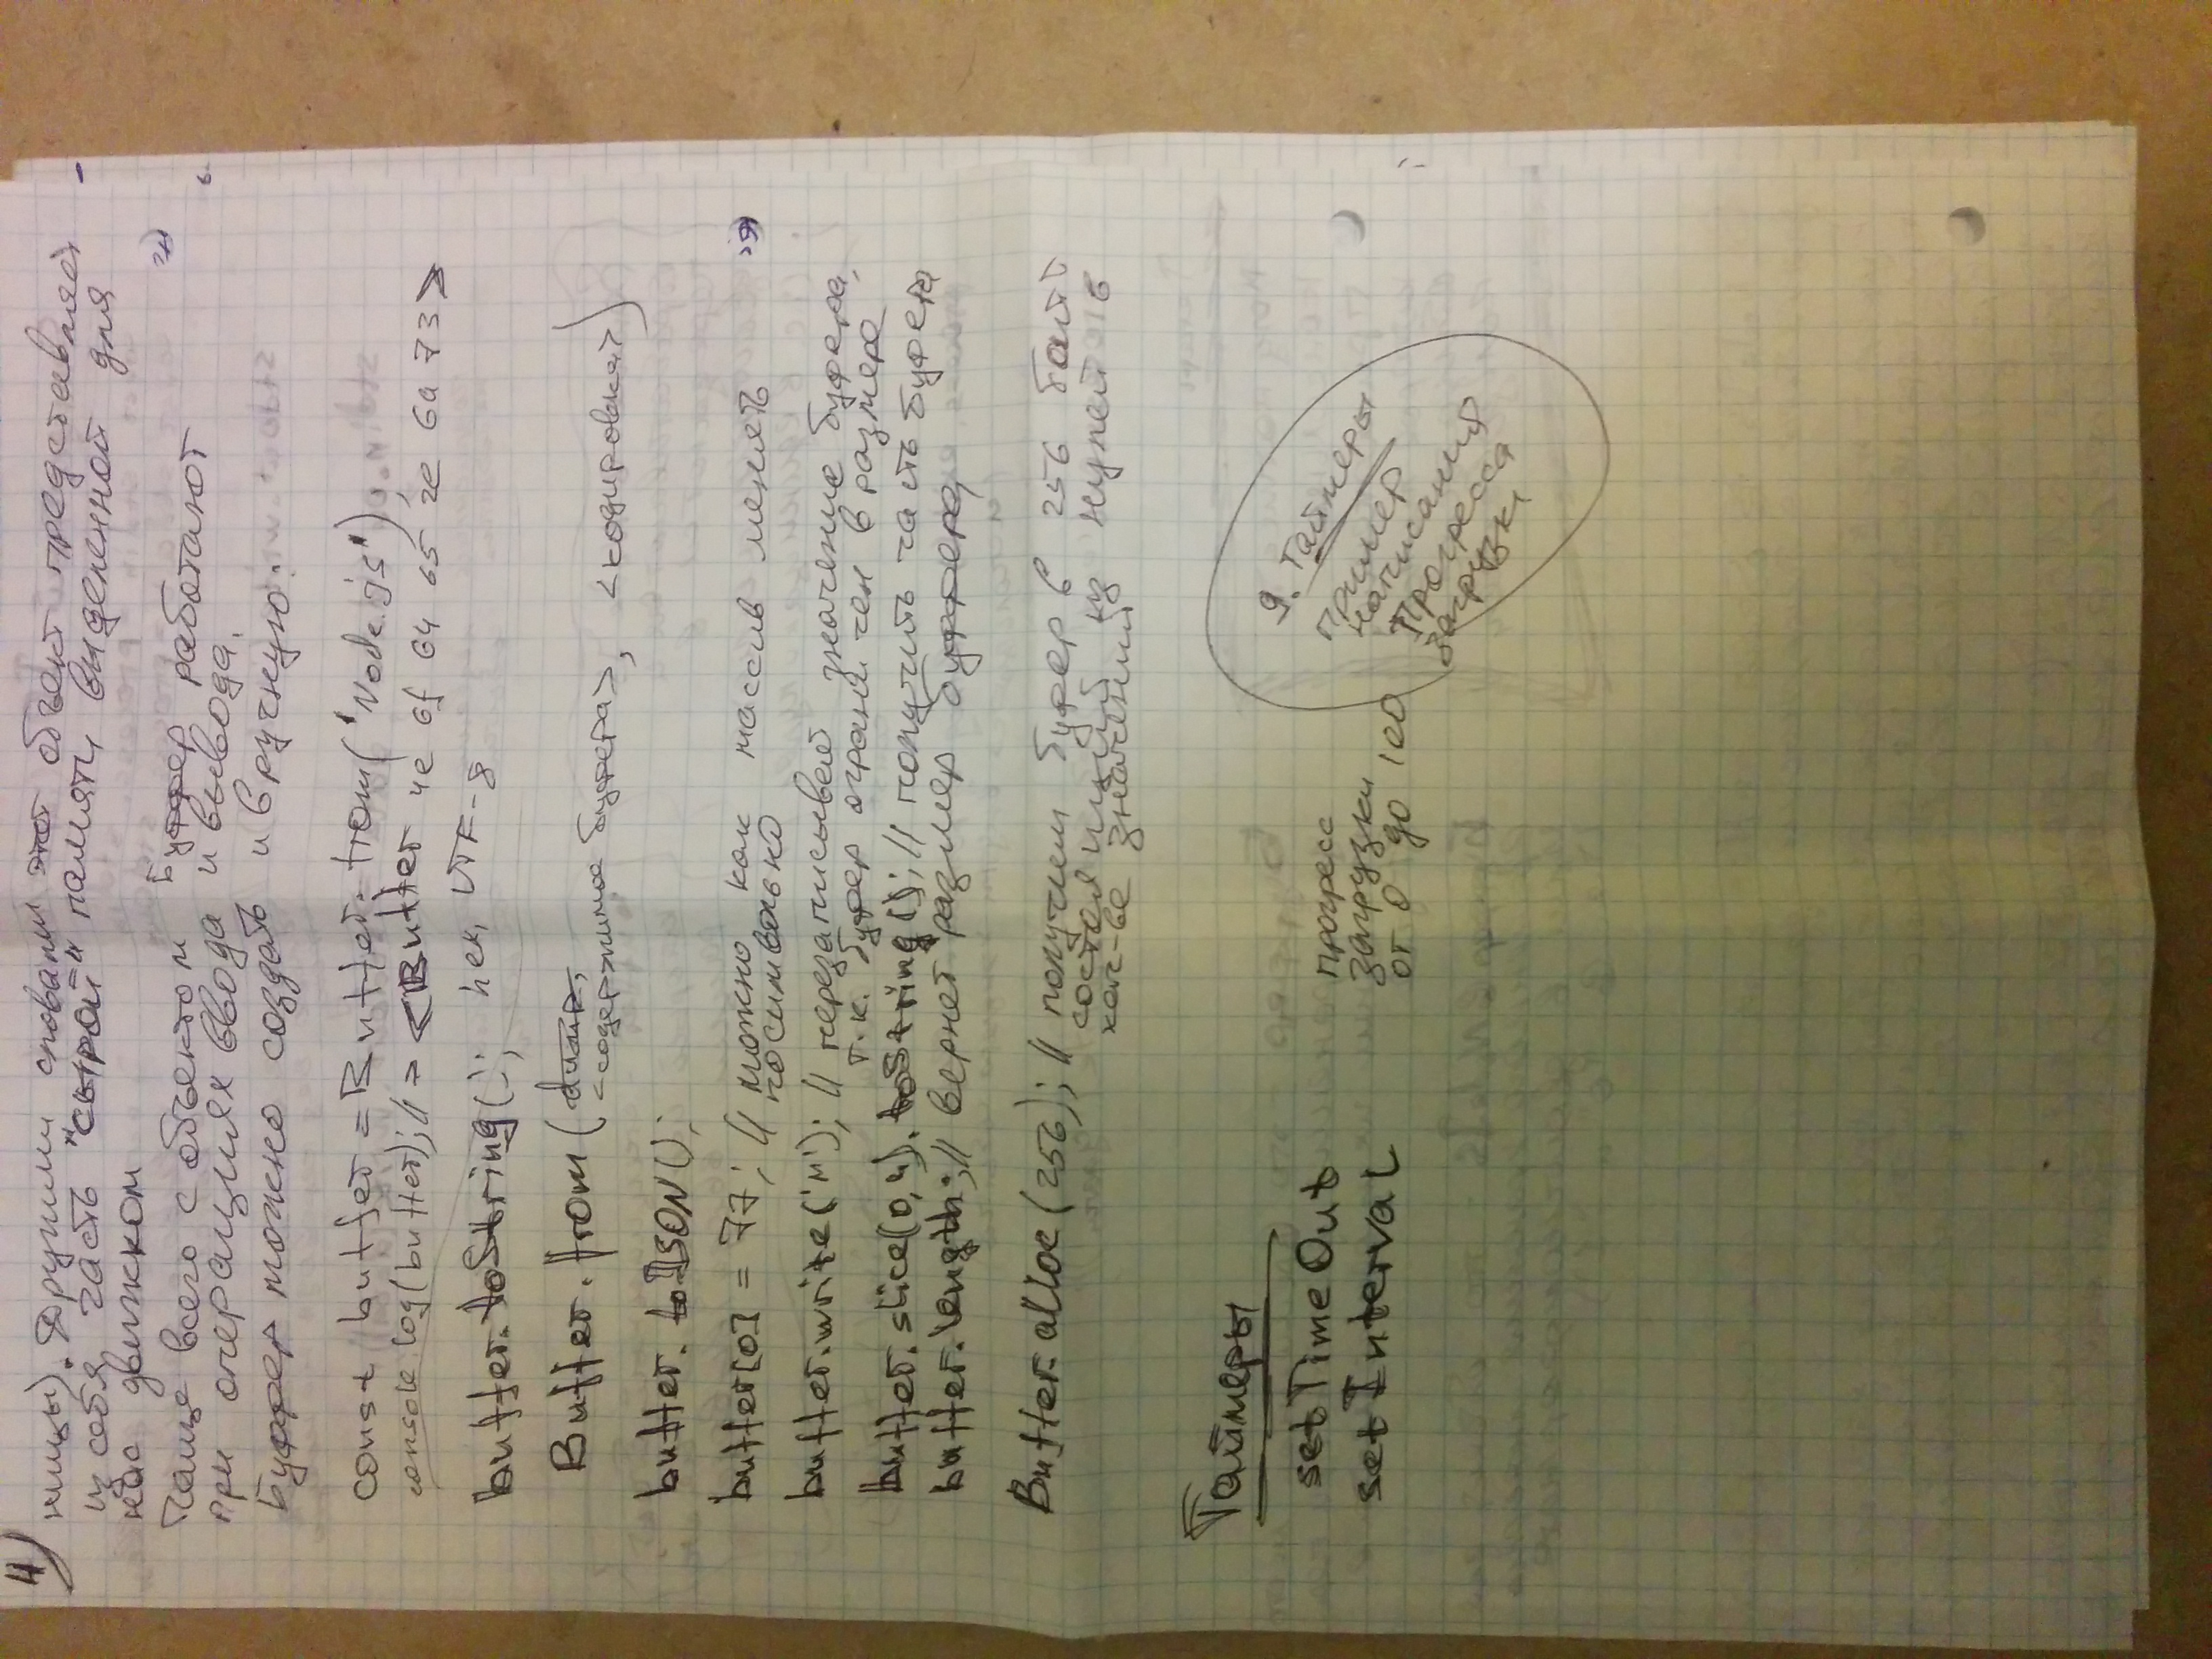 4)
ницы). Другими словами этот объект представляет
из себя часть "сырой" памяти выделенной для
нас движком
Чаще всего с объектом Буффер работают
при операциях ввода и вывода.
Буффер можно создать и вручную:
const buffer = Buffer.from('Node.js');
console.log(buffer); // > <Buffer 4e 6f 64 65 2e 6a 73>
buffer.toString(); hex, UTF-8
Buffer.from(
<содержимое буфера>, <кодировка>)
buffer.toJSON();
buffer[0] = 77; // можно как массив менять
посимвольно
buffer.write('м'); // перезаписывает значение буфера,
т.к. буфер ограничен в размере
buffer.slice(0,4).toString(); // получить часть буфера
buffer.length; // вернет размер буффера
Buffer.alloc(256); // получим буфер в 256 байт
состоящий из нулей в
кач-ве значений
Таймеры
setTimeOut
setInterval
прогресс
загрузки
от 0 до 100
9. Таймеры
пример
написаний
прогресса
загрузки